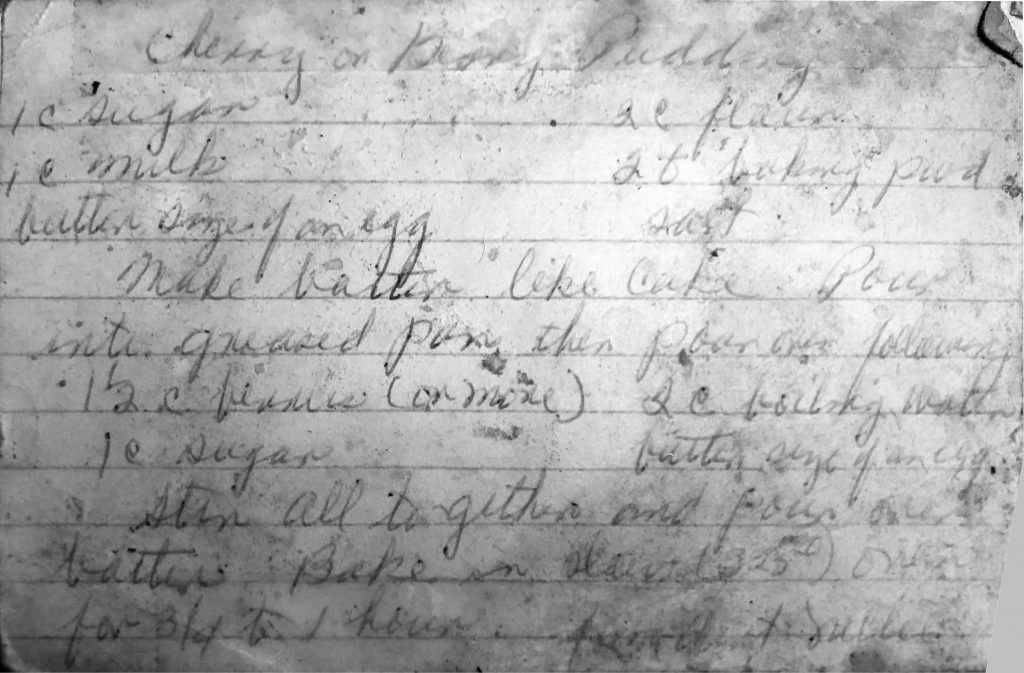 Cherry or Berry Pudding
1 c sugar 2 c flour
1 c milk 2 t baking powd
butter size of an egg salt
Make batter like cake Pour
into greased pan, then pour over following
1 1/2 c berries (or more) 2 c boiling water
1 c sugar butter size of an egg.
Stir all together and pour over
batter. Bake in slow (325°) oven
for 3/4 to 1 hour.